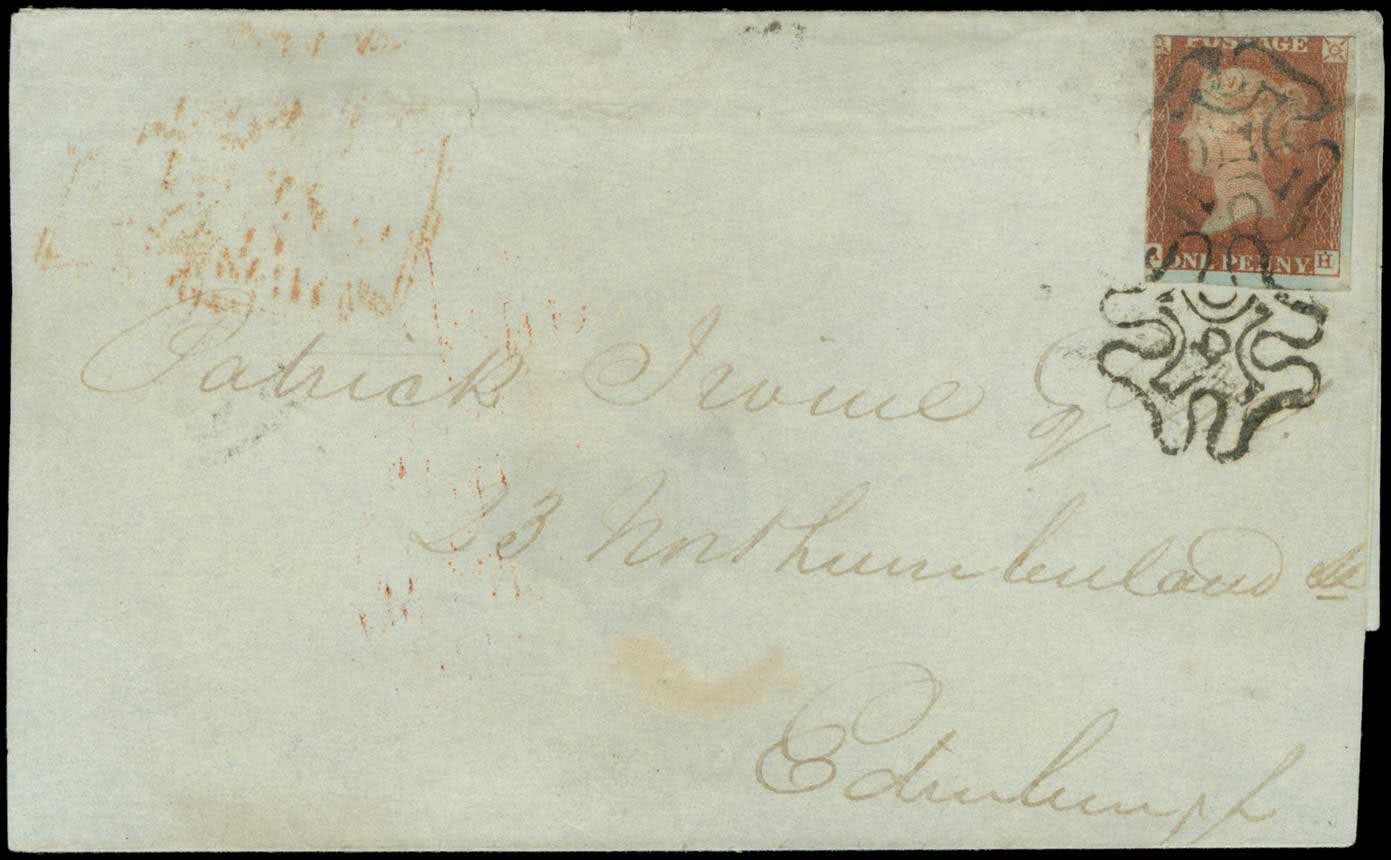 POSTAGE
ONE PENNY H
Patrick Irvine Esq
23 Northumberland St
Edinburgh